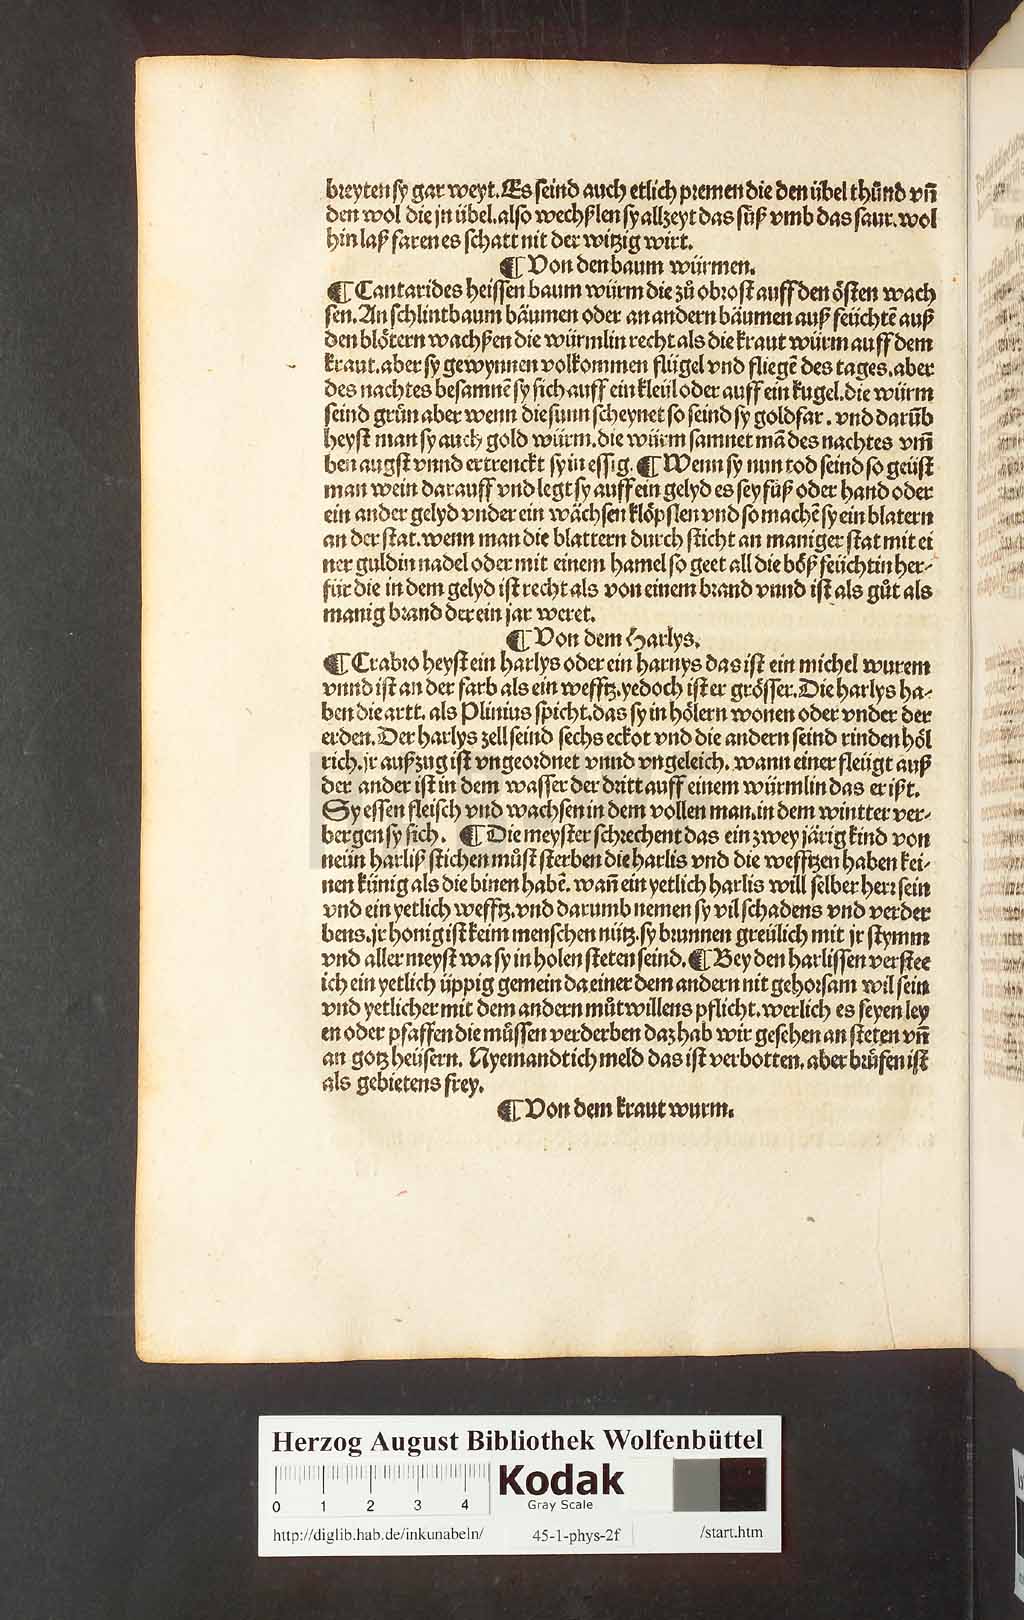 breyten sy gar weyt. Es seind auch etlich premen die den übel thůnd vñ
den wol die jn übel. also wechßlen sy allzeyt das süß vmb das saur. wol
hin laß faren es schatt nit der witzig wirt.
¶ Von den baum würmen.
¶ Cantarides heissen baum würm die zů obrost auff den östen wach
sen. An schlintbaum bäumen oder an andern bäumen auß feüchtē auß
den blötern wachßen die würmlin recht als die kraut würm auff dem
kraut. aber sy gewynnen volkommen flügel vnd fliegē des tages. aber
des nachtes besamnē sy sich auff ein kleül oder auff ein kugel. die würm
seind grün aber wenn die sunn scheynet so seind sy goldfar. vnd darūb
heyst man sy auch gold würm. die würm samnet mā des nachtes vm̄
ben augst vnnd ertrenckt sy in essig. ¶ Wenn sy nun tod seind so geüst
man wein darauff vnd legt sy auff ein gelyd es sey füß oder hand oder
ein ander gelyd vnder ein wächsen klöpslen vnd so machē sy ein blatern
an der stat. wenn man die blattern durch sticht an maniger stat mit ei
ner guldin nadel oder mit einem hamel so geet all die böß feüchtin her-
für die in dem gelyd ist recht als von einem brand vnnd ist als gůt als
manig brand der ein jar weret.
¶ Von dem Harlys.
¶ Crabro heyst ein harlys oder ein harnys das ist ein michel wurem
vnnd ist an der farb als ein wefftz. yedoch ist er grösser. Die harlys ha-
ben die artt. als Plinius spicht. das sy in hölern wonen oder vnder der
erden. Der harlys zell seind sechs eckot vnd die andern seind rinden höl
rich. jr außzug ist vngeordnet vnnd vngeleich. wann einer fleügt auß
der ander ist in dem wasser der dritt auff einem würmlin das er ißt.
Sy essen fleisch vnd wachsen in dem vollen man. in dem wintter ver-
bergen sy sich. ¶ Die meyster schrechent das ein zwey järig kind von
neün harliß stichen můst sterben die harlis vnd die wefftzen haben kei-
nen künig als die binen habē. wañ ein yetlich harlis will selber herr sein
vnd ein yetlich wefftz. vnd darumb nemen sy vil schadens vnd verder
bens. jr honig ist keim menschen nütz. sy brunnen greülich mit jr stymm
vnd aller meyst wa sy in holen steten seind. ¶ Bey den harlissen verstee
ich ein yetlich üppig gemein da einer dem andern nit gehorsam wil sein
vnd yetlicher mit dem andern můtwillens pflicht. werlich es seyen ley
en oder pfaffen die müssen verderben daz hab wir gesehen an steten vñ
an gotz heüsern. Nyemandt ich meld das ist verbotten. aber brüfen ist
als gebietens frey.
¶ Von dem kraut wurm.
Herzog August Bibliothek Wolfenbüttel
0 1 2 3 4
Kodak
Gray Scale
http://diglib.hab.de/inkunabeln/ 45-1-phys-2f /start.htm